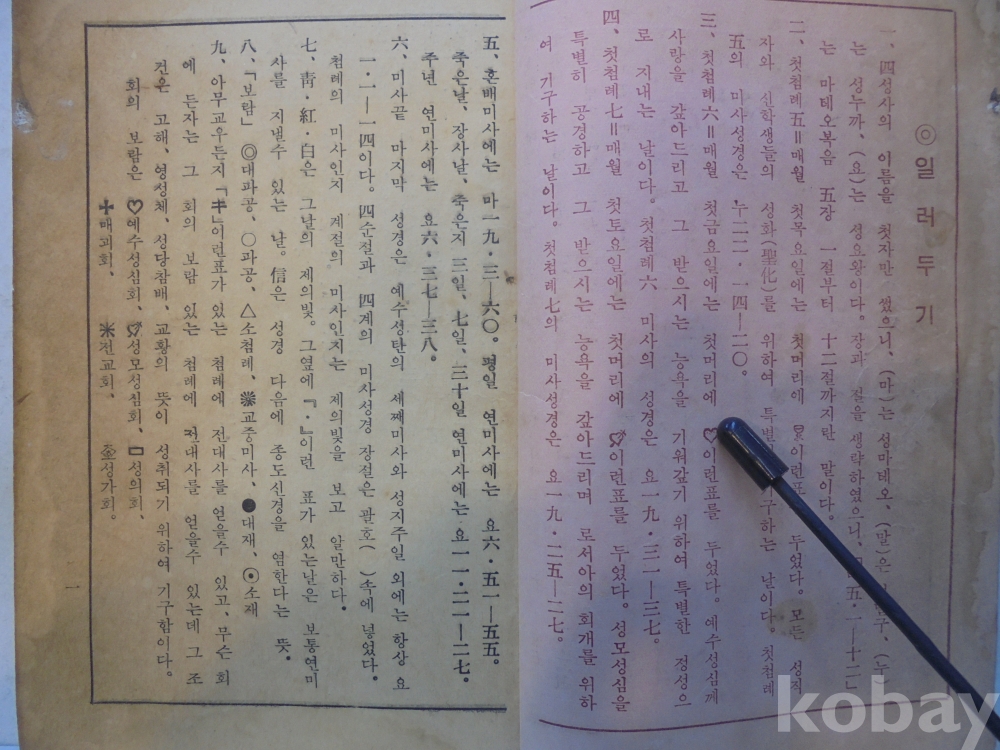 ◎일러두기
一、四성사의 이름을 첫자만 썼으니、(마)는 성마테오、(말)은
는 성누까、(요)는 성요왕이다。장과 절을 생략하였으니、 五·一—十二」
는 마테오복음 五장 一절부터 十二절까지란 말이다。
二、첫첨례五=매월 첫목요일에는 첫머리에 이런표 두었다。모든 성직
자와 신학생들의 성화(聖化)를 위하여 특별 기구하는 날이다。첫첨례
五의 미사성경은 누二二·一四—二○。
三、첫첨례六=매월 첫금요일에는 첫머리에 ♡이런표를 두었다。예수성심께
사랑을 갚아드리고 그 받으시는 능욕을 기워갚기 위하여 특별한 정성으
로 지내는 날이다。첫첨례六 미사의 성경은 요一九·三一—三七。
四、첫첨례七=매월 첫토요일에는 첫머리에 이런표를 두었다。성모성심을
특별히 공경하고 그 받으시는 능욕을 갚아드리며 로서아의 회개를 위하
여 기구하는 날이다。첫첨례七의 미사성경은 요一九·二五—二七。
五、혼배미사에는 마一九·三—六○。평일 연미사에는 요六·五一—五五。
죽은날、장사날、죽은지 三일、七일、三十일 연미사에는 요一一·二一—二七。
주년 연미사에는 요六·三七—三八。
六、미사끝 마지막 성경은 예수성탄의 세째미사와 성지주일 외에는 항상 요
一·一—一四이다。四순절과 四계의 미사성경 장절은 괄호( )속에 넣었다。
첨례의 미사인지 계절의 미사인지는 제의빛을 보고 알만하다。
七、靑·紅·白은 그날의 제의빛。그옆에『·』이런 표가 있는날은 보통연미
사를 지낼수 있는 날。信은 성경 다음에 종도신경을 염한다는 뜻。
八、「보람」◎대파공、○파공、△소첨례、교중미사、●대재、⊙소재
九、아무교우든지「キ」이런표가 있는 첨례에 전대사를 얻을수 있고、무슨 회
에 든자는 그 회의 보람 있는 첨례에 전대사를 얻을수 있는데 그 조
건은 고해、영성체、성당참배、교황의 뜻이 성취되기 위하여 기구함이다。
회의 보람은 ♡예수성심회、성모성심회、성의회、
✚매괴회、 전교회、 성가회。
一
kobay